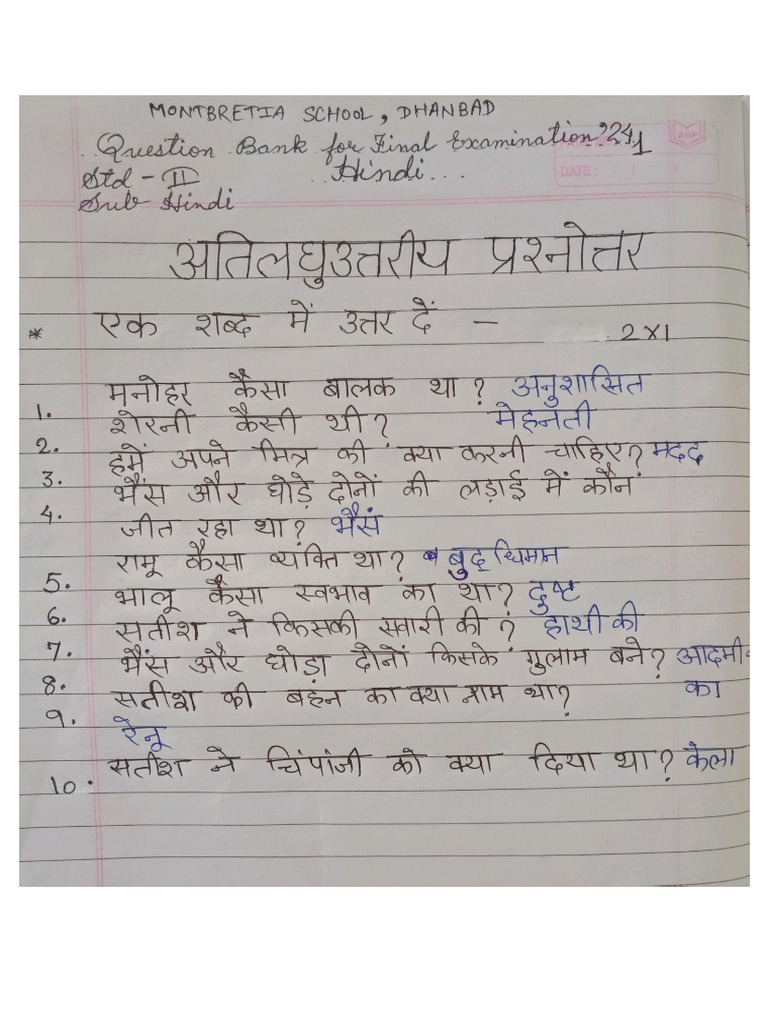 MONTBRETIA SCHOOL, DHANBAD
Question Bank for Final Examination'24
Std - II Hindi...
Sub Hindi
DATE:
अतिलघुउत्तरीय प्रश्नोत्तर
* एक शब्द में उत्तर दें - 2×1
1. मनोहर कैसा बालक था? अनुशासित
2. शेरनी कैसी थी? मेहनती
3. हमें अपने मित्र की क्या करनी चाहिए? मदद
4. भैंस और घोड़े दोनों की लड़ाई में कौन
जीत रहा था? भैंस
5. रामू कैसा व्यक्ति था? बुद्धिमान
6. भालू कैसा स्वभाव का था? दुष्ट
7. सतीश ने किसकी सवारी की? हाथी की
8. भैंस और घोड़ा दोनों किसके गुलाम बने? आदमी
9. सतीश की बहन का क्या नाम था? का
रेनू
10. सतीश ने चिंपांजी को क्या दिया था? केला